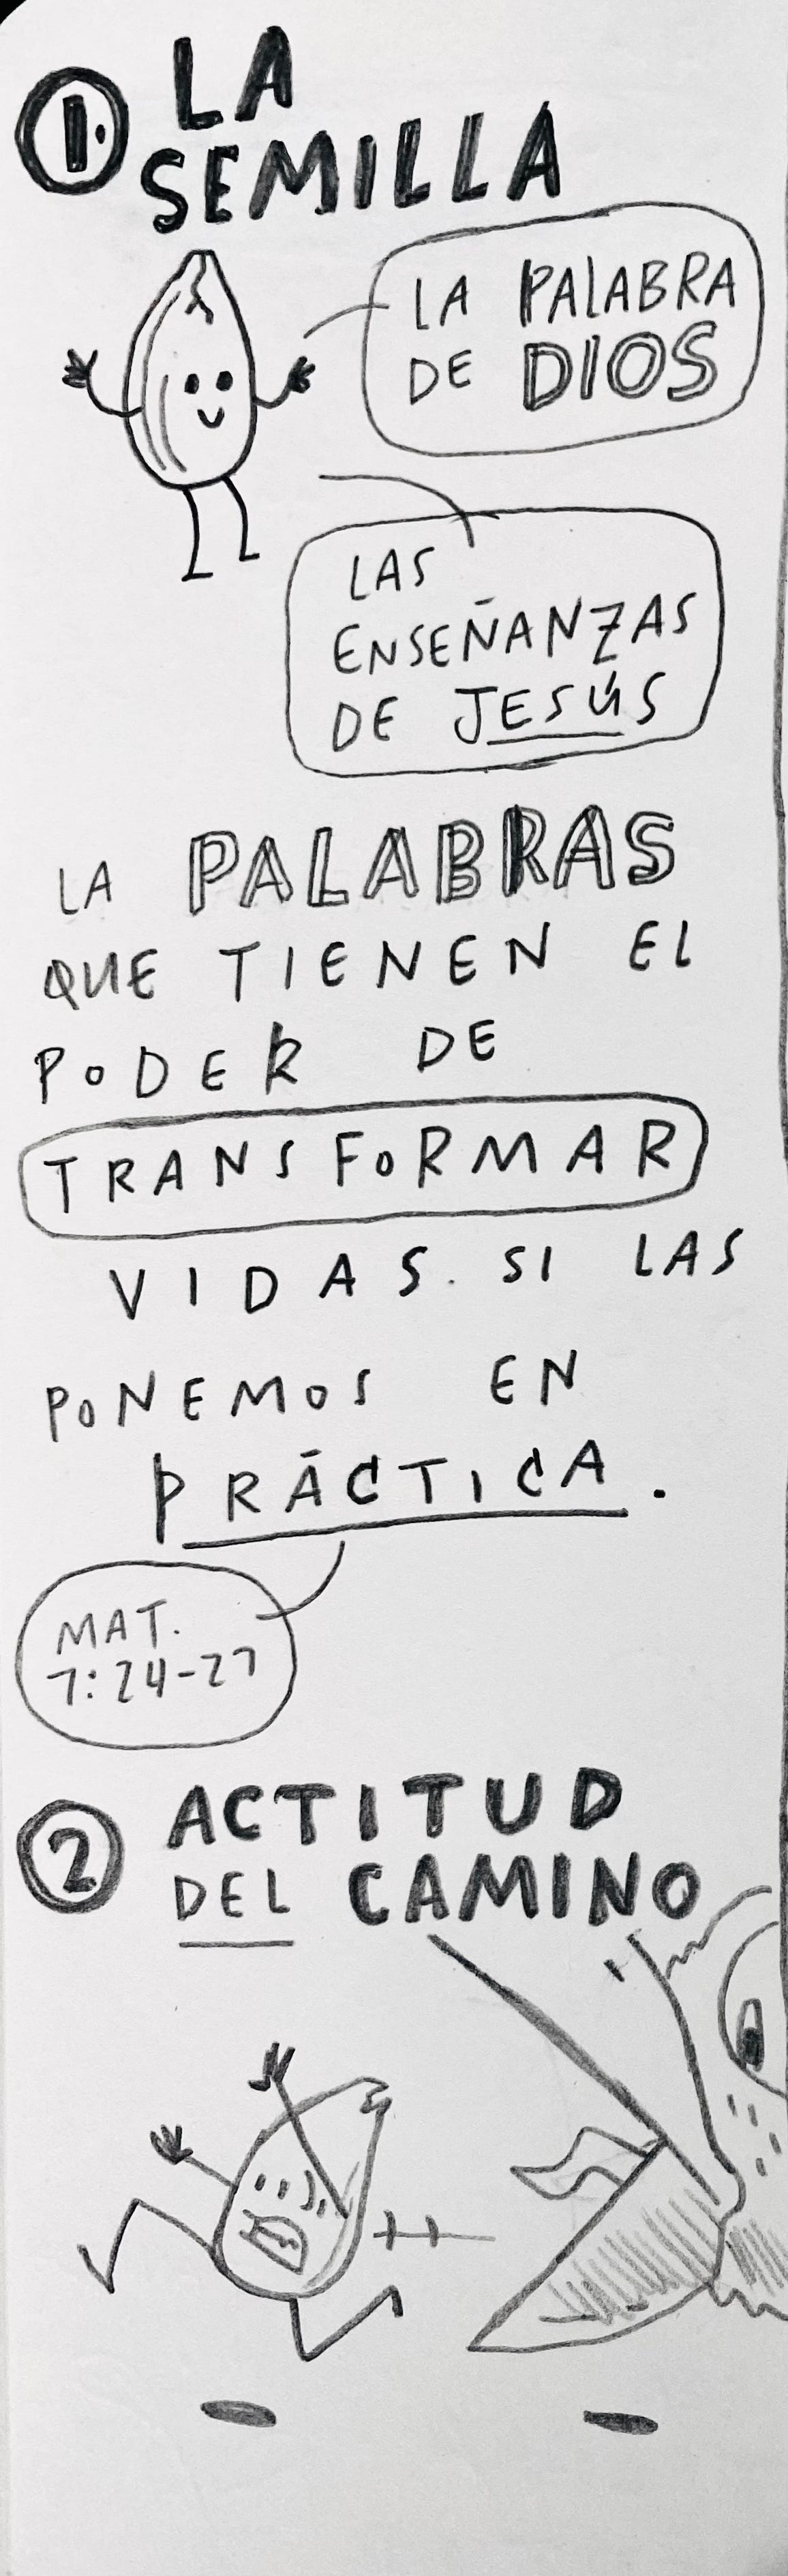 1. LA
SEMILLA
LA PALABRA
DE DIOS
LAS
ENSEÑANZAS
DE JESÚS
LA PALABRAS
QUE TIENEN EL
PODER DE
TRANSFORMAR
VIDAS. SI LAS
PONEMOS EN
PRÁCTICA.
MAT.
7:24-27
2 ACTITUD
DEL CAMINO